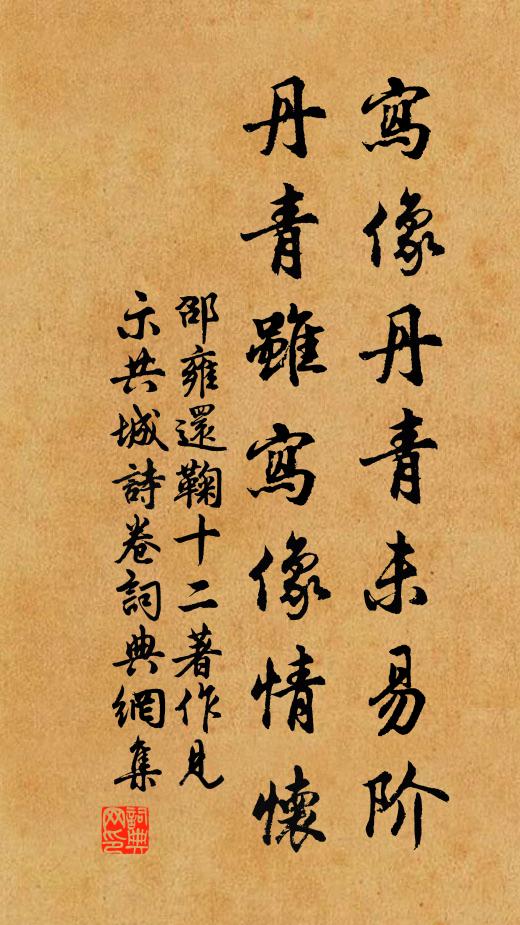 寫像丹青未易阶
丹青雖寫像情懷
邵雍還鞠十二著作見
示共城詩卷詞典網集
詞典
网印